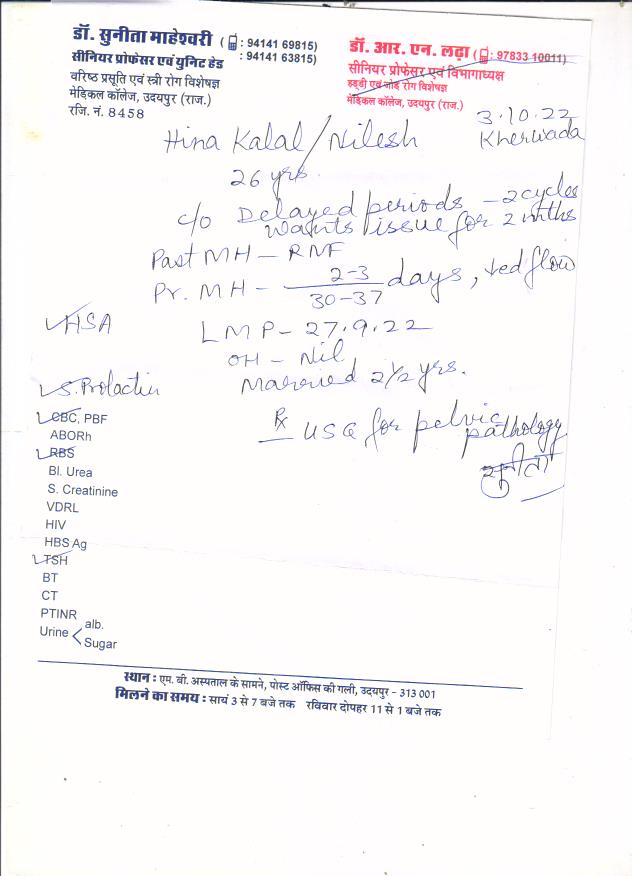 डॉ. सुनीता माहेश्वरी ( : 94141 69815)
: 94141 63815)
सीनियर प्रोफेसर एवं यूनिट हेड
वरिष्ठ प्रसूति एवं स्त्री रोग विशेषज्ञ
मेडिकल कॉलेज, उदयपुर (राज.)
रजि. नं. 8458
डॉ. आर. एन. लढ़ा ( : 97833 10011)
सीनियर प्रोफेसर एवं विभागाध्यक्ष
हड्डी एवं जोड़ रोग विशेषज्ञ
मेडिकल कॉलेज, उदयपुर (राज.)
3.10.22
Kherwada
Hina Kalal / Nilesh
26 yrs.
c/o Delayed periods - 2 cycles
wants issue for 2 mths
Past MH - RMF
Pr. MH - 2-3 / 30-37 days, ↓ed flow
LMP - 27.9.22
OH - Nil
Married 2 1/2 yrs.
℞ USG for pelvic
pathology
सुनीता
✓HSA
✓S. Prolactin
✓CBC, PBF
ABORh
✓RBS
Bl. Urea
S. Creatinine
VDRL
HIV
HBS Ag
✓TSH
BT
CT
PTINR
Urine < alb.
Sugar
स्थान : एम. बी. अस्पताल के सामने, पोस्ट ऑफिस की गली, उदयपुर - 313 001
मिलने का समय : सायं 3 से 7 बजे तक रविवार दोपहर 11 से 1 बजे तक